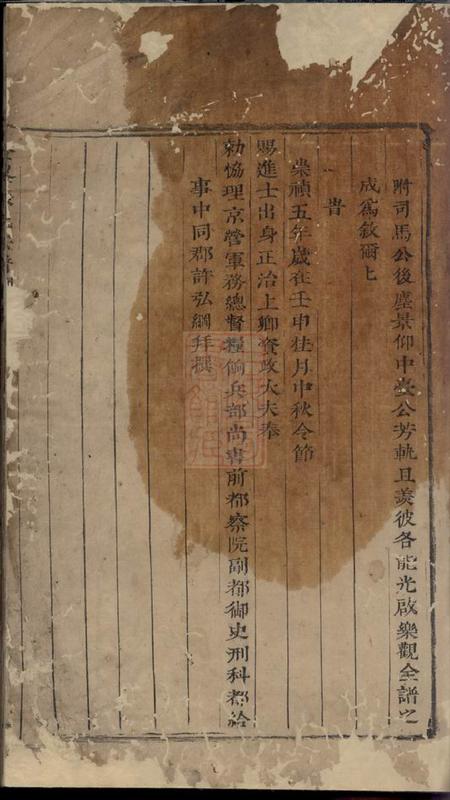 附司馬公後塵景仰中壼公芳軌且羨彼各能光啟樂觀全譜之
成為敘爾也
旹
崇禎五年歲在壬申桂月中秋令節
賜進士出身正治上卿資政大夫奉
勅協理京營軍務總督糧餉兵部尚書前都察院副都御史刑科都給
事中同郡許弘綱拜撰